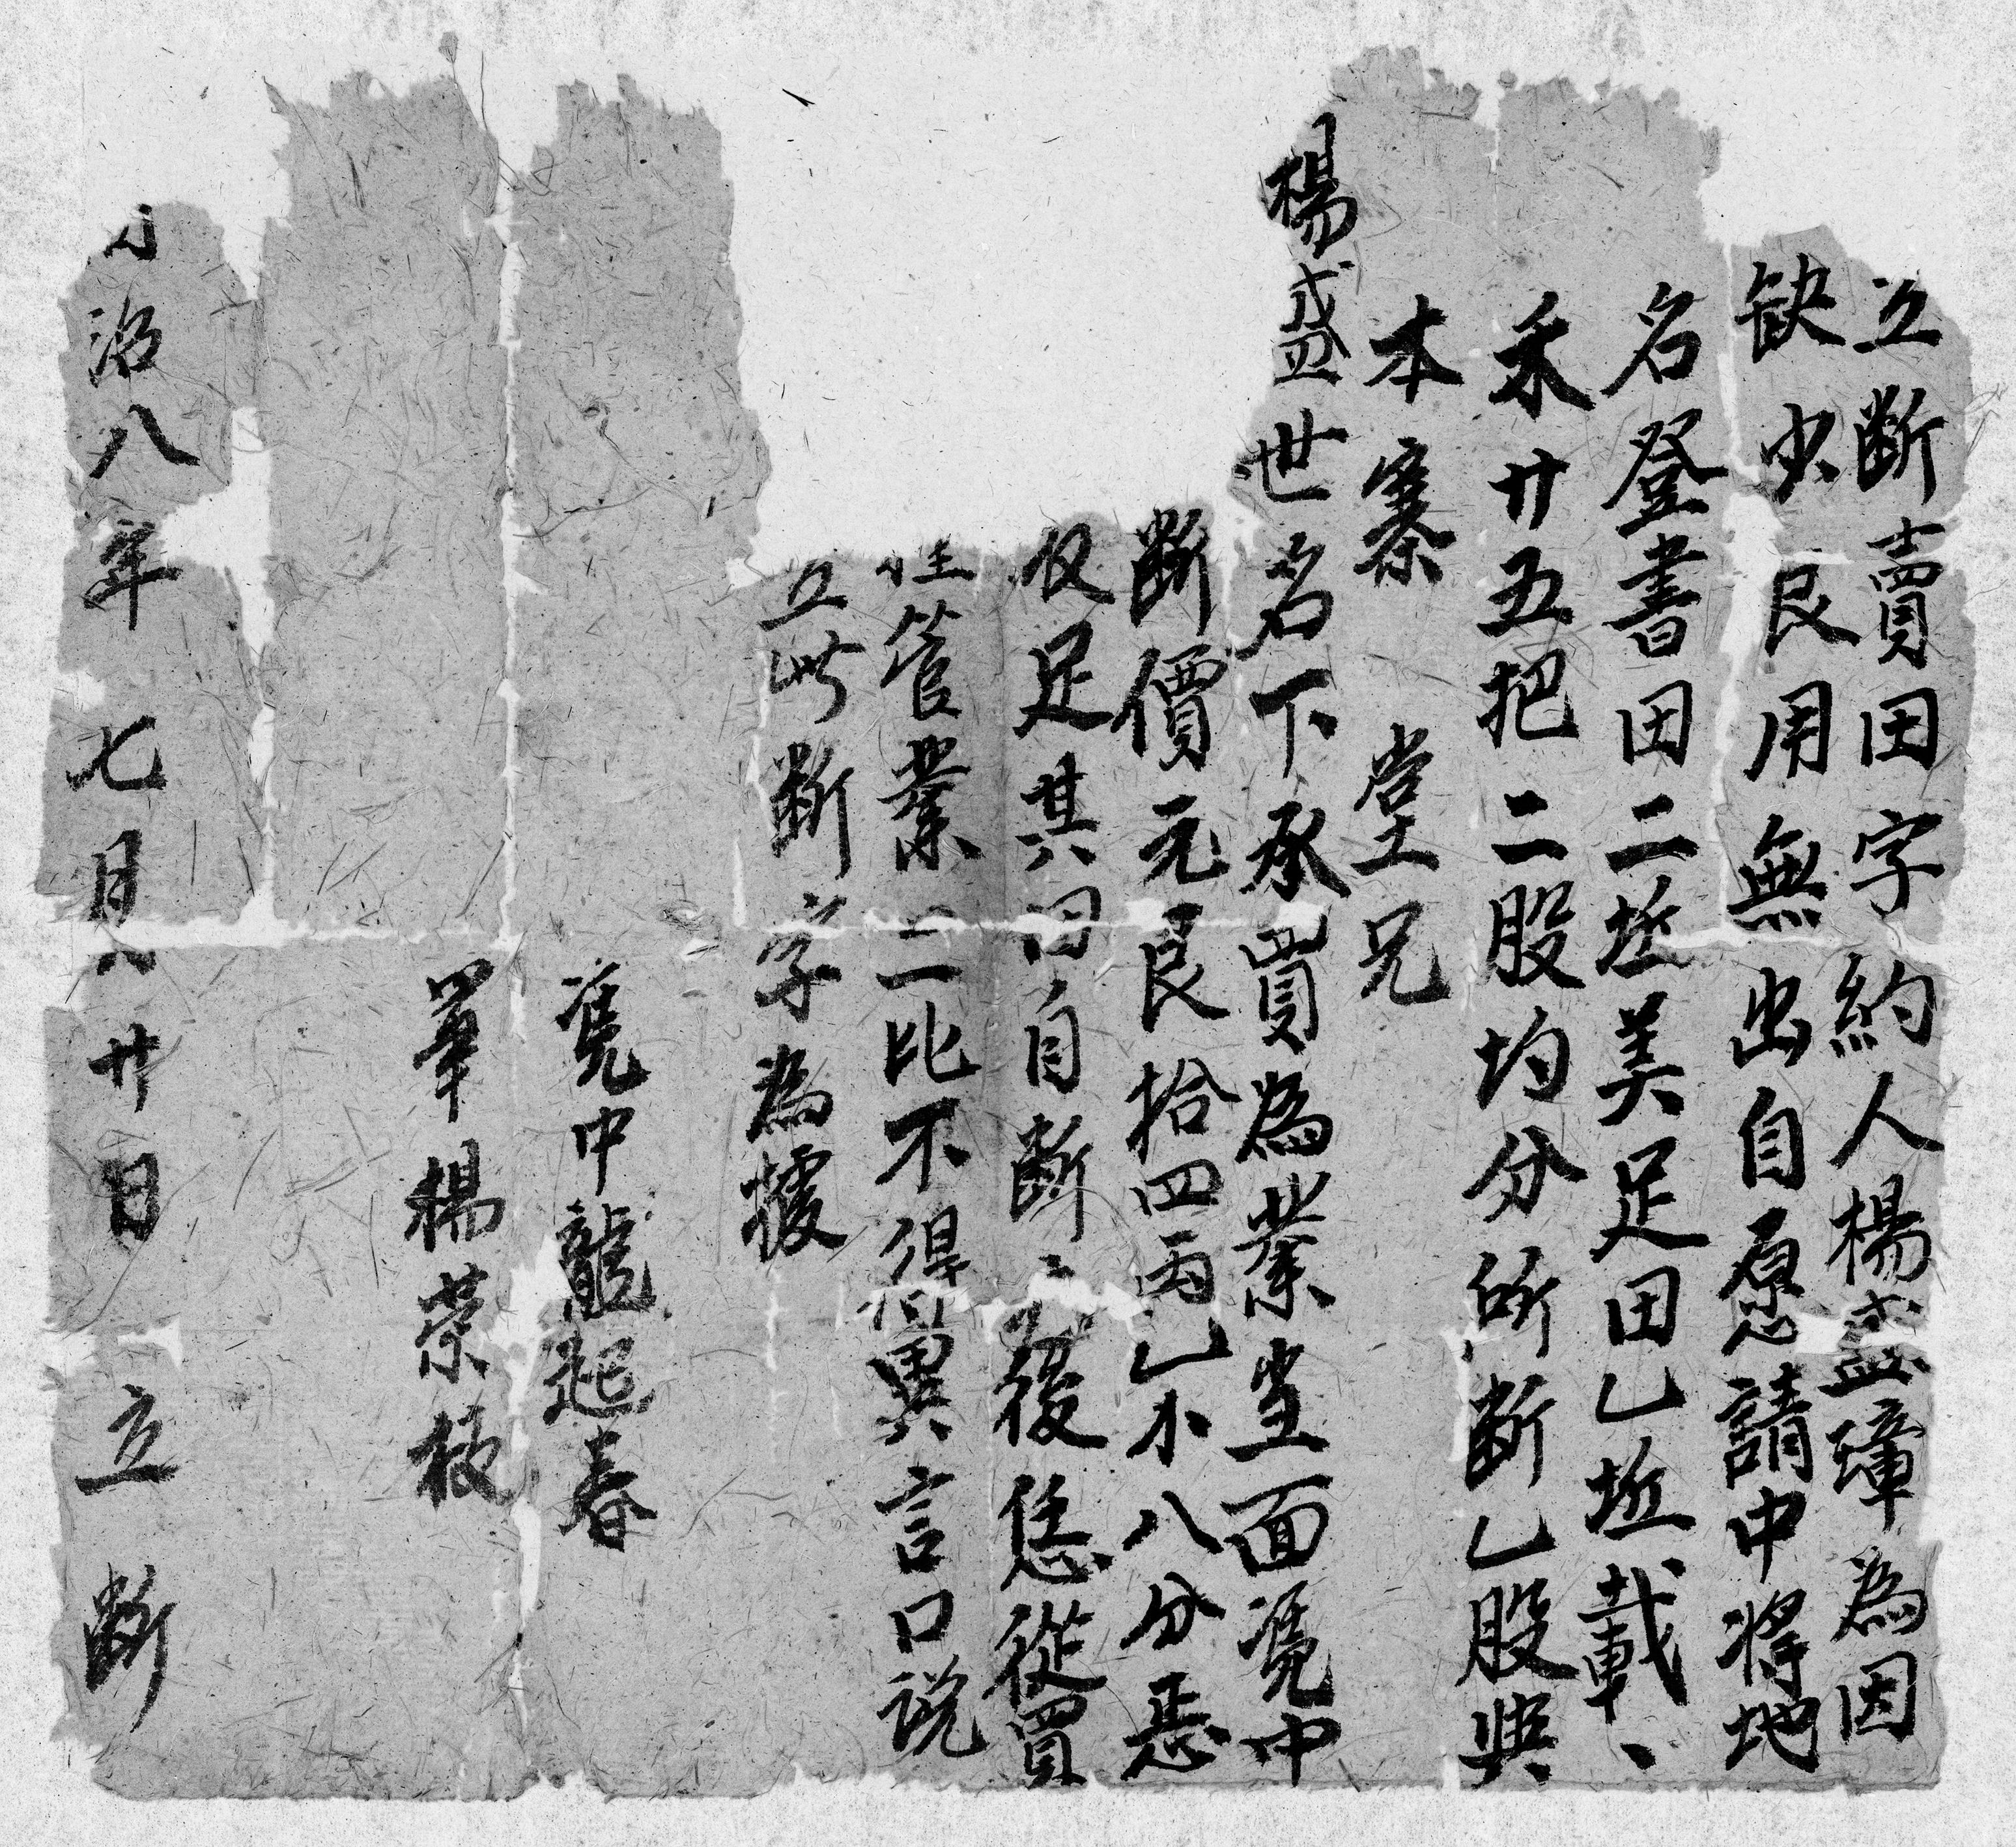 立断賣田字約人楊盛璋為因
缺少艮用無出自愿請中将地
名登書田二坵美足田乙坵載、
禾廿五把二股均分所断乙股與
本寨 堂兄
楊盛世名下承買為業當面憑中
断價元艮拾四両乙小八分悉
収足其田自断之後恁從買
管業二比不得異言口説
立此断字為據
憑中龍起春
筆楊荣枝
治八年七月廿日立断